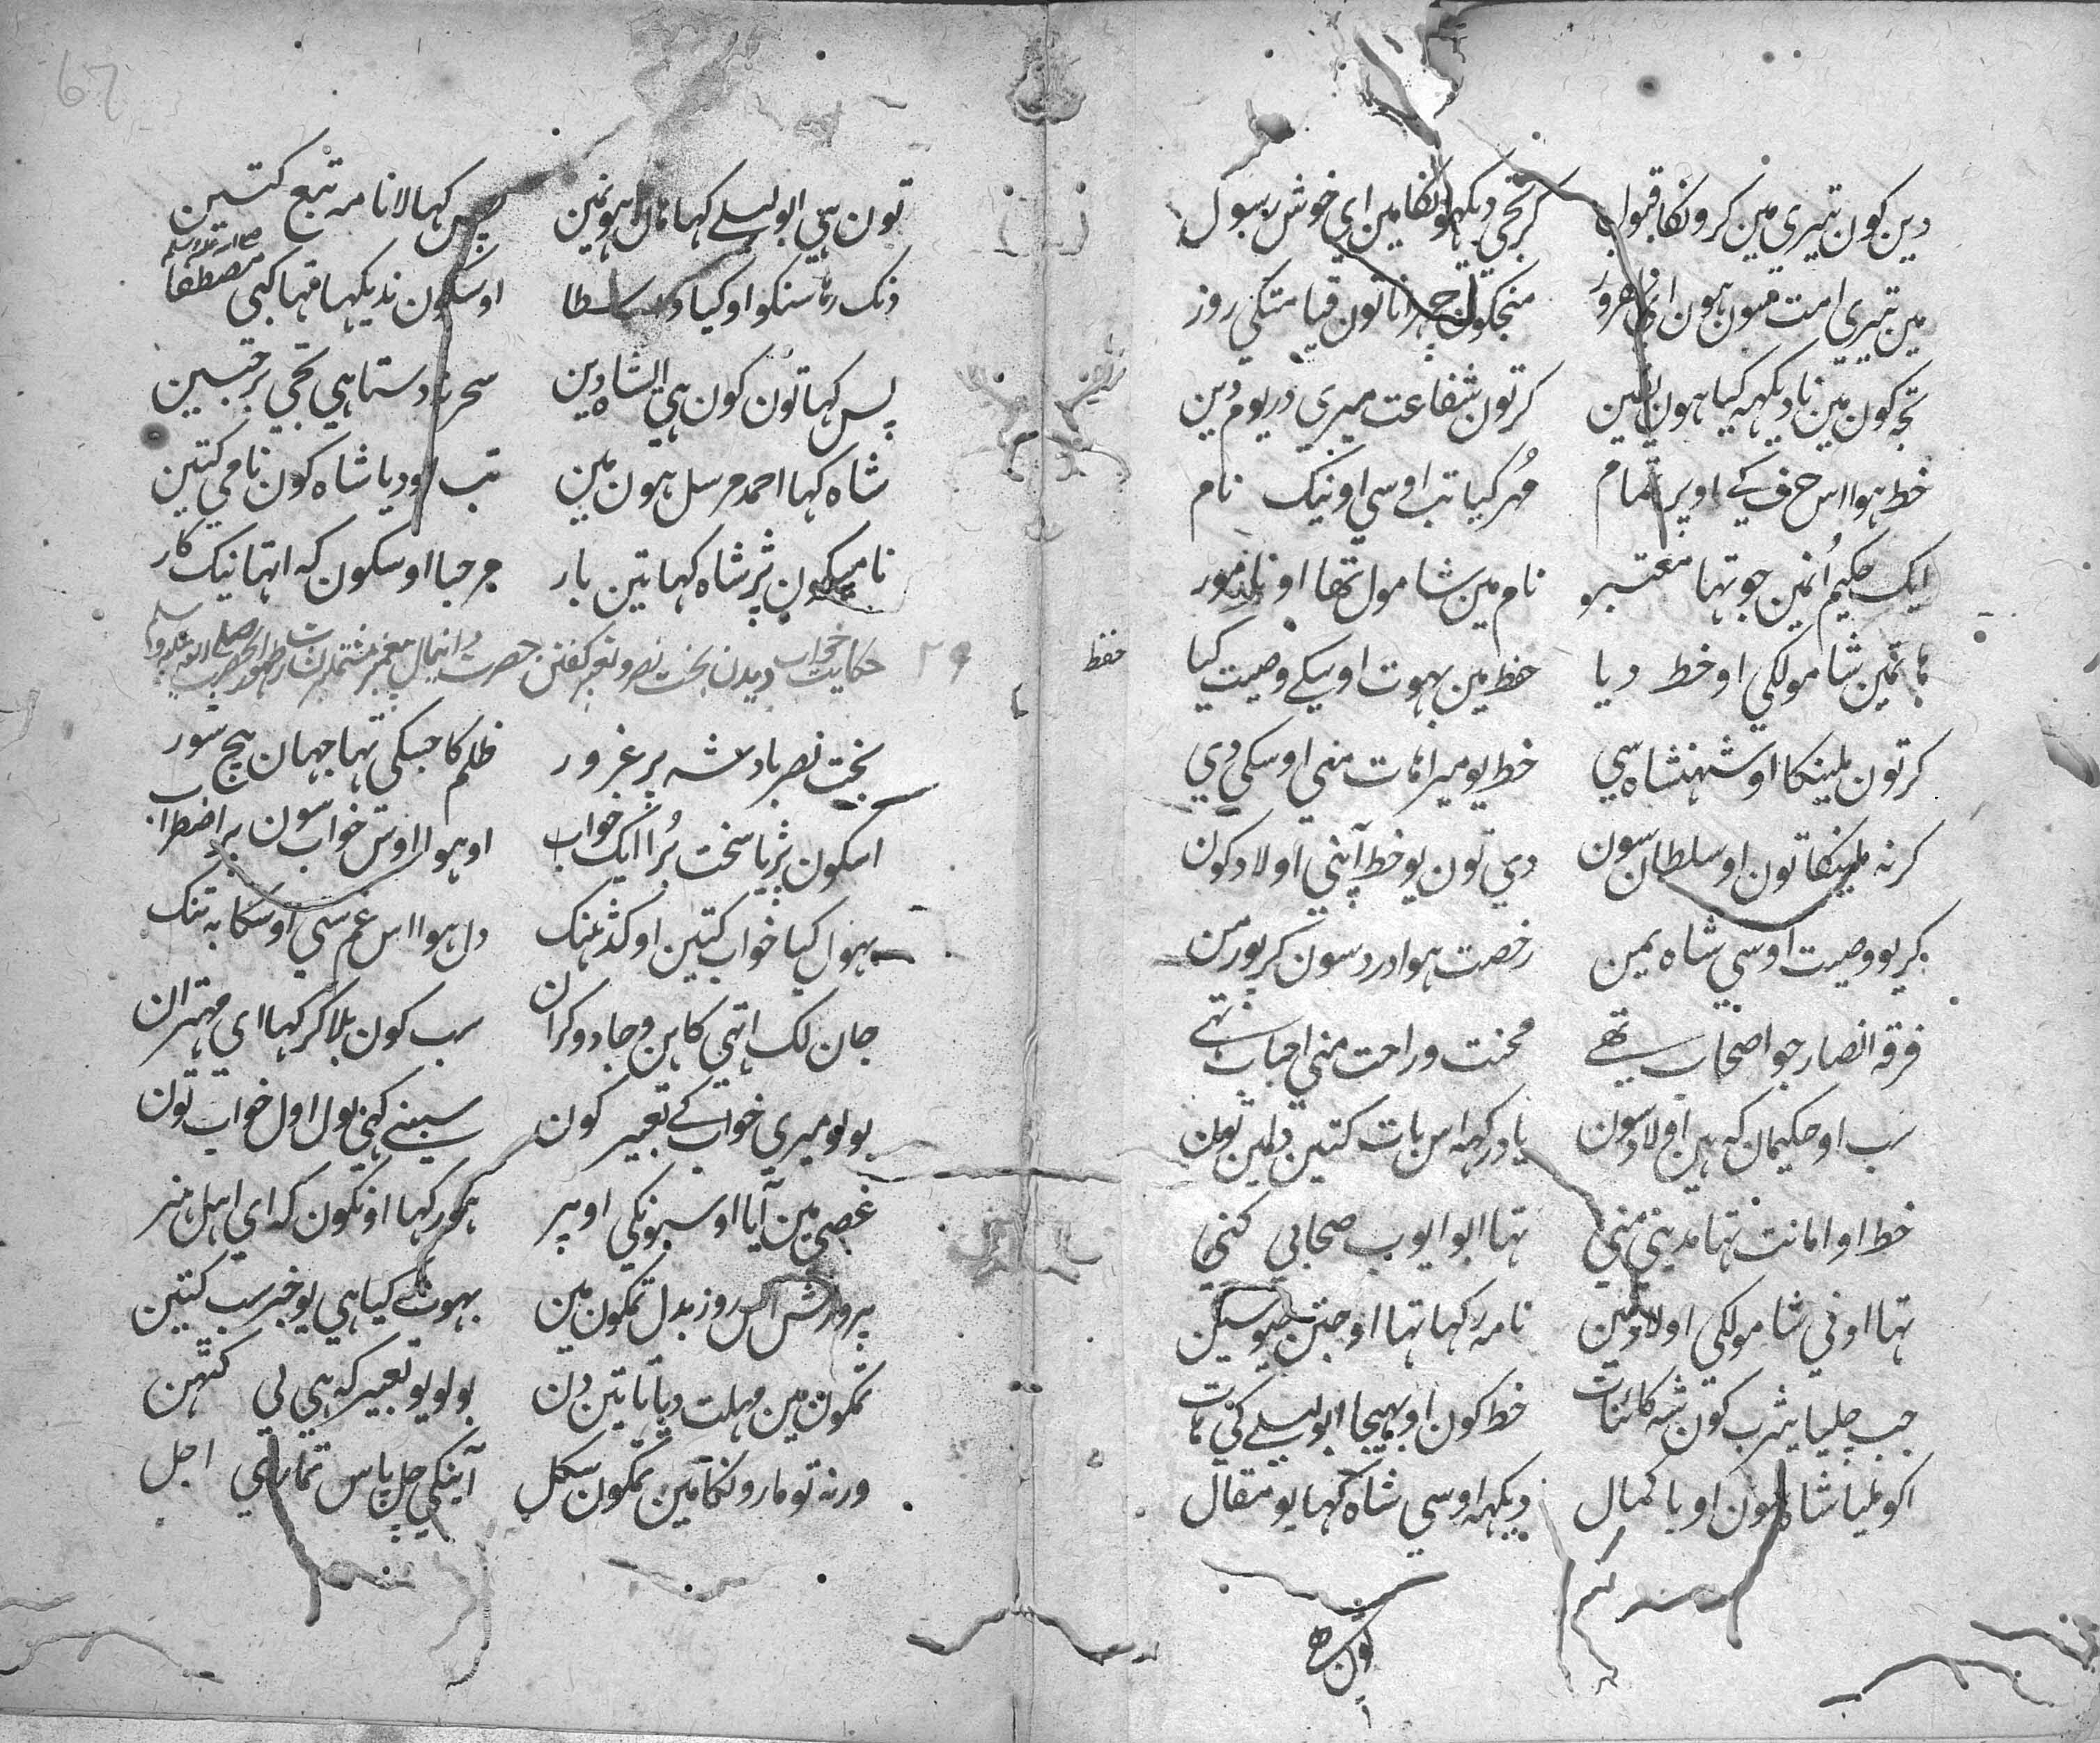 دین کون تیری مین کرونکا قبول کر تجی دیکهونکا مین ای خوش رسول
مین تیری امت مون هون ای منجکون تون قیامتکی روز
تجه کون مین نا دیکهه کیا هون یقین کر تون شفاعت میری در یوم دین
خط هوا اس حرف کے اوپر تمام مُهر کیا تب اوسی او نیک نام
ایک حکیم اُنمین جو تها معتبر نام مین شامول تها او نامور
هاتمین شامولکی او خط دیا حفظ مین بهوت اوسکے وصیت کیا
حفظ
کر تون ملینکا او شهنشاه سی خط یو میرا هات منی اوسکی دی
کر نه ملینکا تون او سلطان سون دی تون یو خط آپنی اولاد کون
کر یو وصیت اوسی شاه یمن رخصت هوا درد سون کر پور من
فرقه انصار جو اصحاب تهے محنت و راحت منی احباب تهے
سب او حکیمان که هین اولاد سون یاد رکهه اس بات کتین تون
خط او امانت تها مدینی منی تها ابو ایوب صحابی کنی
تها اوفی شامولکی اولاد مین نامه رکها تها او جتن سین
جب چلیا یثرب کون شه کائنات خط کون او بهیجا ابو لیلے کی هات
اکو ملیا شاه سون او با کمال دیکهه اوسی شاه کها یو مقال
تون هے
67
تون هی ابو لیلے کها هان هونمین پس کها لا نامه تبع کتین
دنک رها سنکو او کیا اوسکون ندیکها تها کبی مصطفا
صلی الله علیه وسلم
پس کها تون کون هی ای شاه دین سحر نا دستا هی تجی بر جبین
شاه کها احمد مرسل هون مین تب او دیا شاه کون نامی کتین
نامیکون پڑ شاه کها تین بار مرحبا اوسکون که اتها نیک کار
۲۹ حکایت خواب دیدن بخت نصر و تعبیر کفتن حضرت دانیال پیغمبر مشتملبر بشارت ظهور انحضرت صلی الله علیه وسلم
بخت نصر بادشه پر غرور ظلم کا جسکی تها جهان بیچ شور
اسکون پڑیا سخت بُرا ایک خواب او هوا اوس خواب سون پر اضطراب
بهول کیا خواب کتین او کڈهنک دل هوا اس غم سی اوسکا به تنک
جان لک اتهی کاهن و جادوکران سب کون بلا کر کها ای مهتران
بولو میری خواب کے تعبیر کون سبنے کهی بول اول خواب تون
غصی مین آیا او سبونکی اوپر هور کها اونکون که ای اهل هنر
پرورش اس روز بدل تمکون مین بهوت کیا هی یو خبر سب کتین
تمکون مین مهلت دیا تا تین دن بولو یو تعبیر که هی بی کتهن
ورنه تو مارونکا مین تمکون سکل آینکی چل پاس تماری اجل